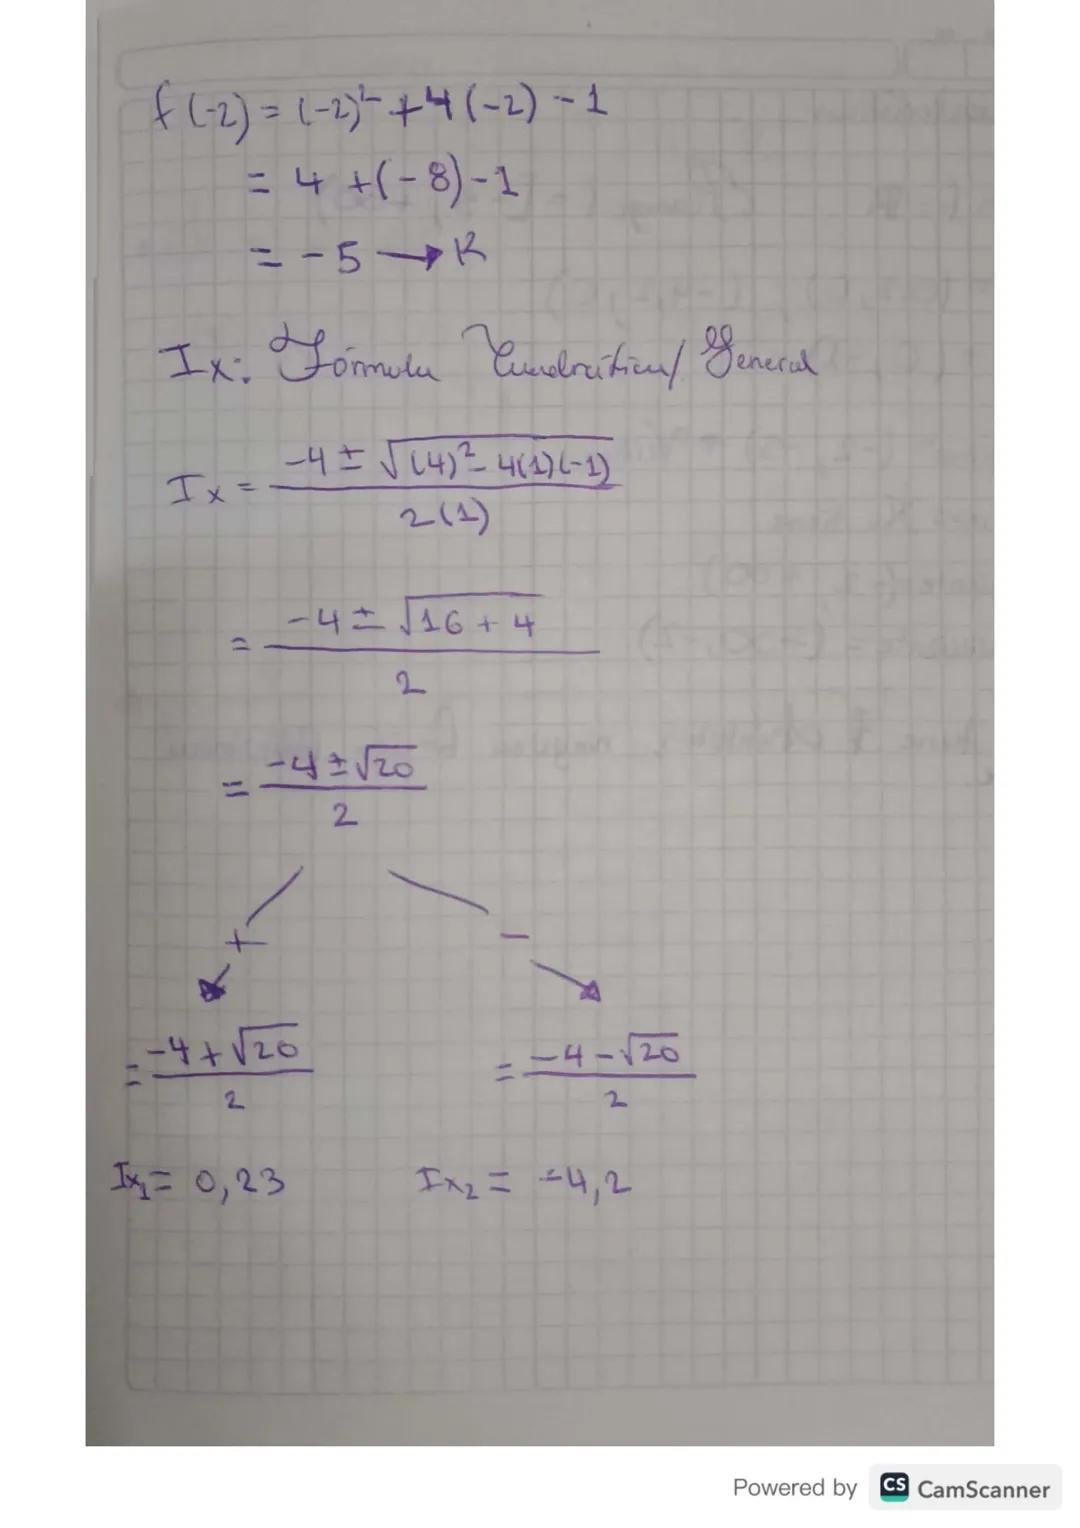 f(-2) = (-2)² + 4(-2) - 1
= 4 + (-8) - 1
= -5 → K
Ix: Fórmula Cuadrática/General
Ix = (-4 ± √((4)² - 4(1)(-1))) / 2(1)
= (-4 ± √(16 + 4)) / 2
= (-4 ± √20) / 2
+ -
= (-4 + √20) / 2 = (-4 - √20) / 2
Ix₁ = 0,23 Ix₂ = -4,2
Powered by CS CamScanner